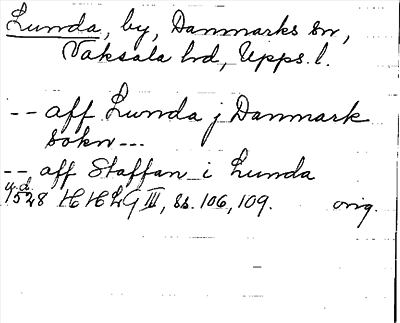 Lunda, by, Danmarks sn,
Vaksala hd, Upps. l.
-- aff Lunda j Danmark
sokn ---
-- aff Staffan i Lunda
u.d.
1528 HHLG III, ss. 106, 109. orig.